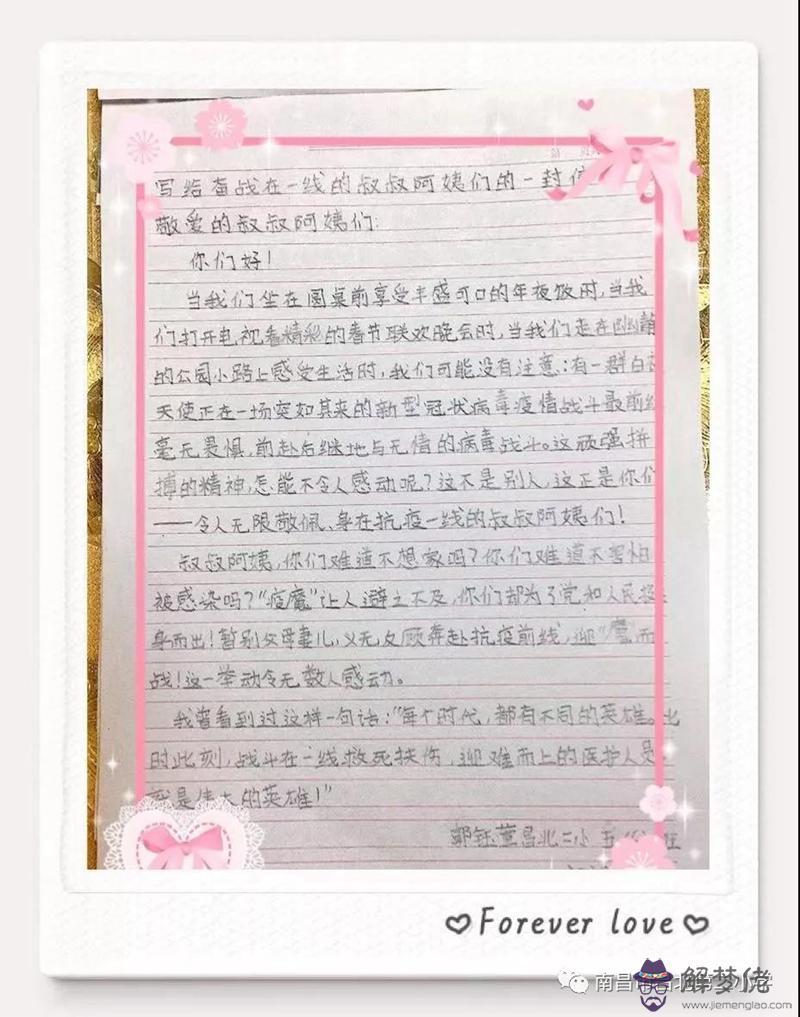 写给奋战在一线的叔叔阿姨们的一封信
敬爱的叔叔阿姨们:
你们好!
当我们坐在圆桌前享受丰盛可口的年夜饭时,当我
们打开电视看精彩的春节联欢晚会时,当我们走在幽静
的公园小路上感受生活时,我们可能没有注意:有一群白衣
天使正在一场突如其来的新型冠状病毒疫情战斗最前线
毫无畏惧,前赴后继地与无情的病毒战斗。这顽强拼
搏的精神,怎能不令人感动呢?这不是别人,这正是你们
——令人无限敬佩、身在抗疫一线的叔叔阿姨们!
叔叔阿姨,你们难道不想家吗?你们难道不害怕
被感染吗?"疫魔"让人避之不及,你们却为了党和人民挺
身而出!暂别父母妻儿,义无反顾奔赴抗疫前线,迎"魔"而
战!这一举动令无数人感动。
我曾看到过这样一句话:"每个时代,都有不同的英雄。此
时此刻,战斗在一线救死扶伤,迎难而上的医护人员
就是伟大的英雄!"
昌北二小 五
Forever love
南昌市昌北第二小学
解梦佬
www.jiemenglao.com